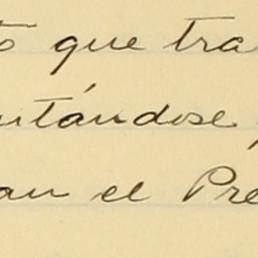 que tra
ntándose
an el Pre